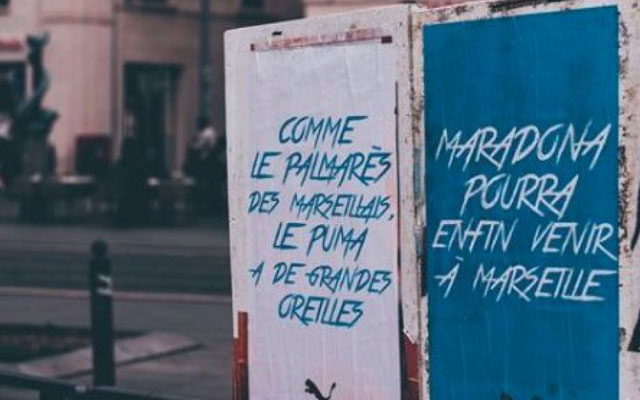 COMME
LE PALMARÈS
DES MARSEILLAIS,
LE PUMA
A DE GRANDES
OREILLES
MARADONA
POURRA
ENFIN VENIR
À MARSEILLE